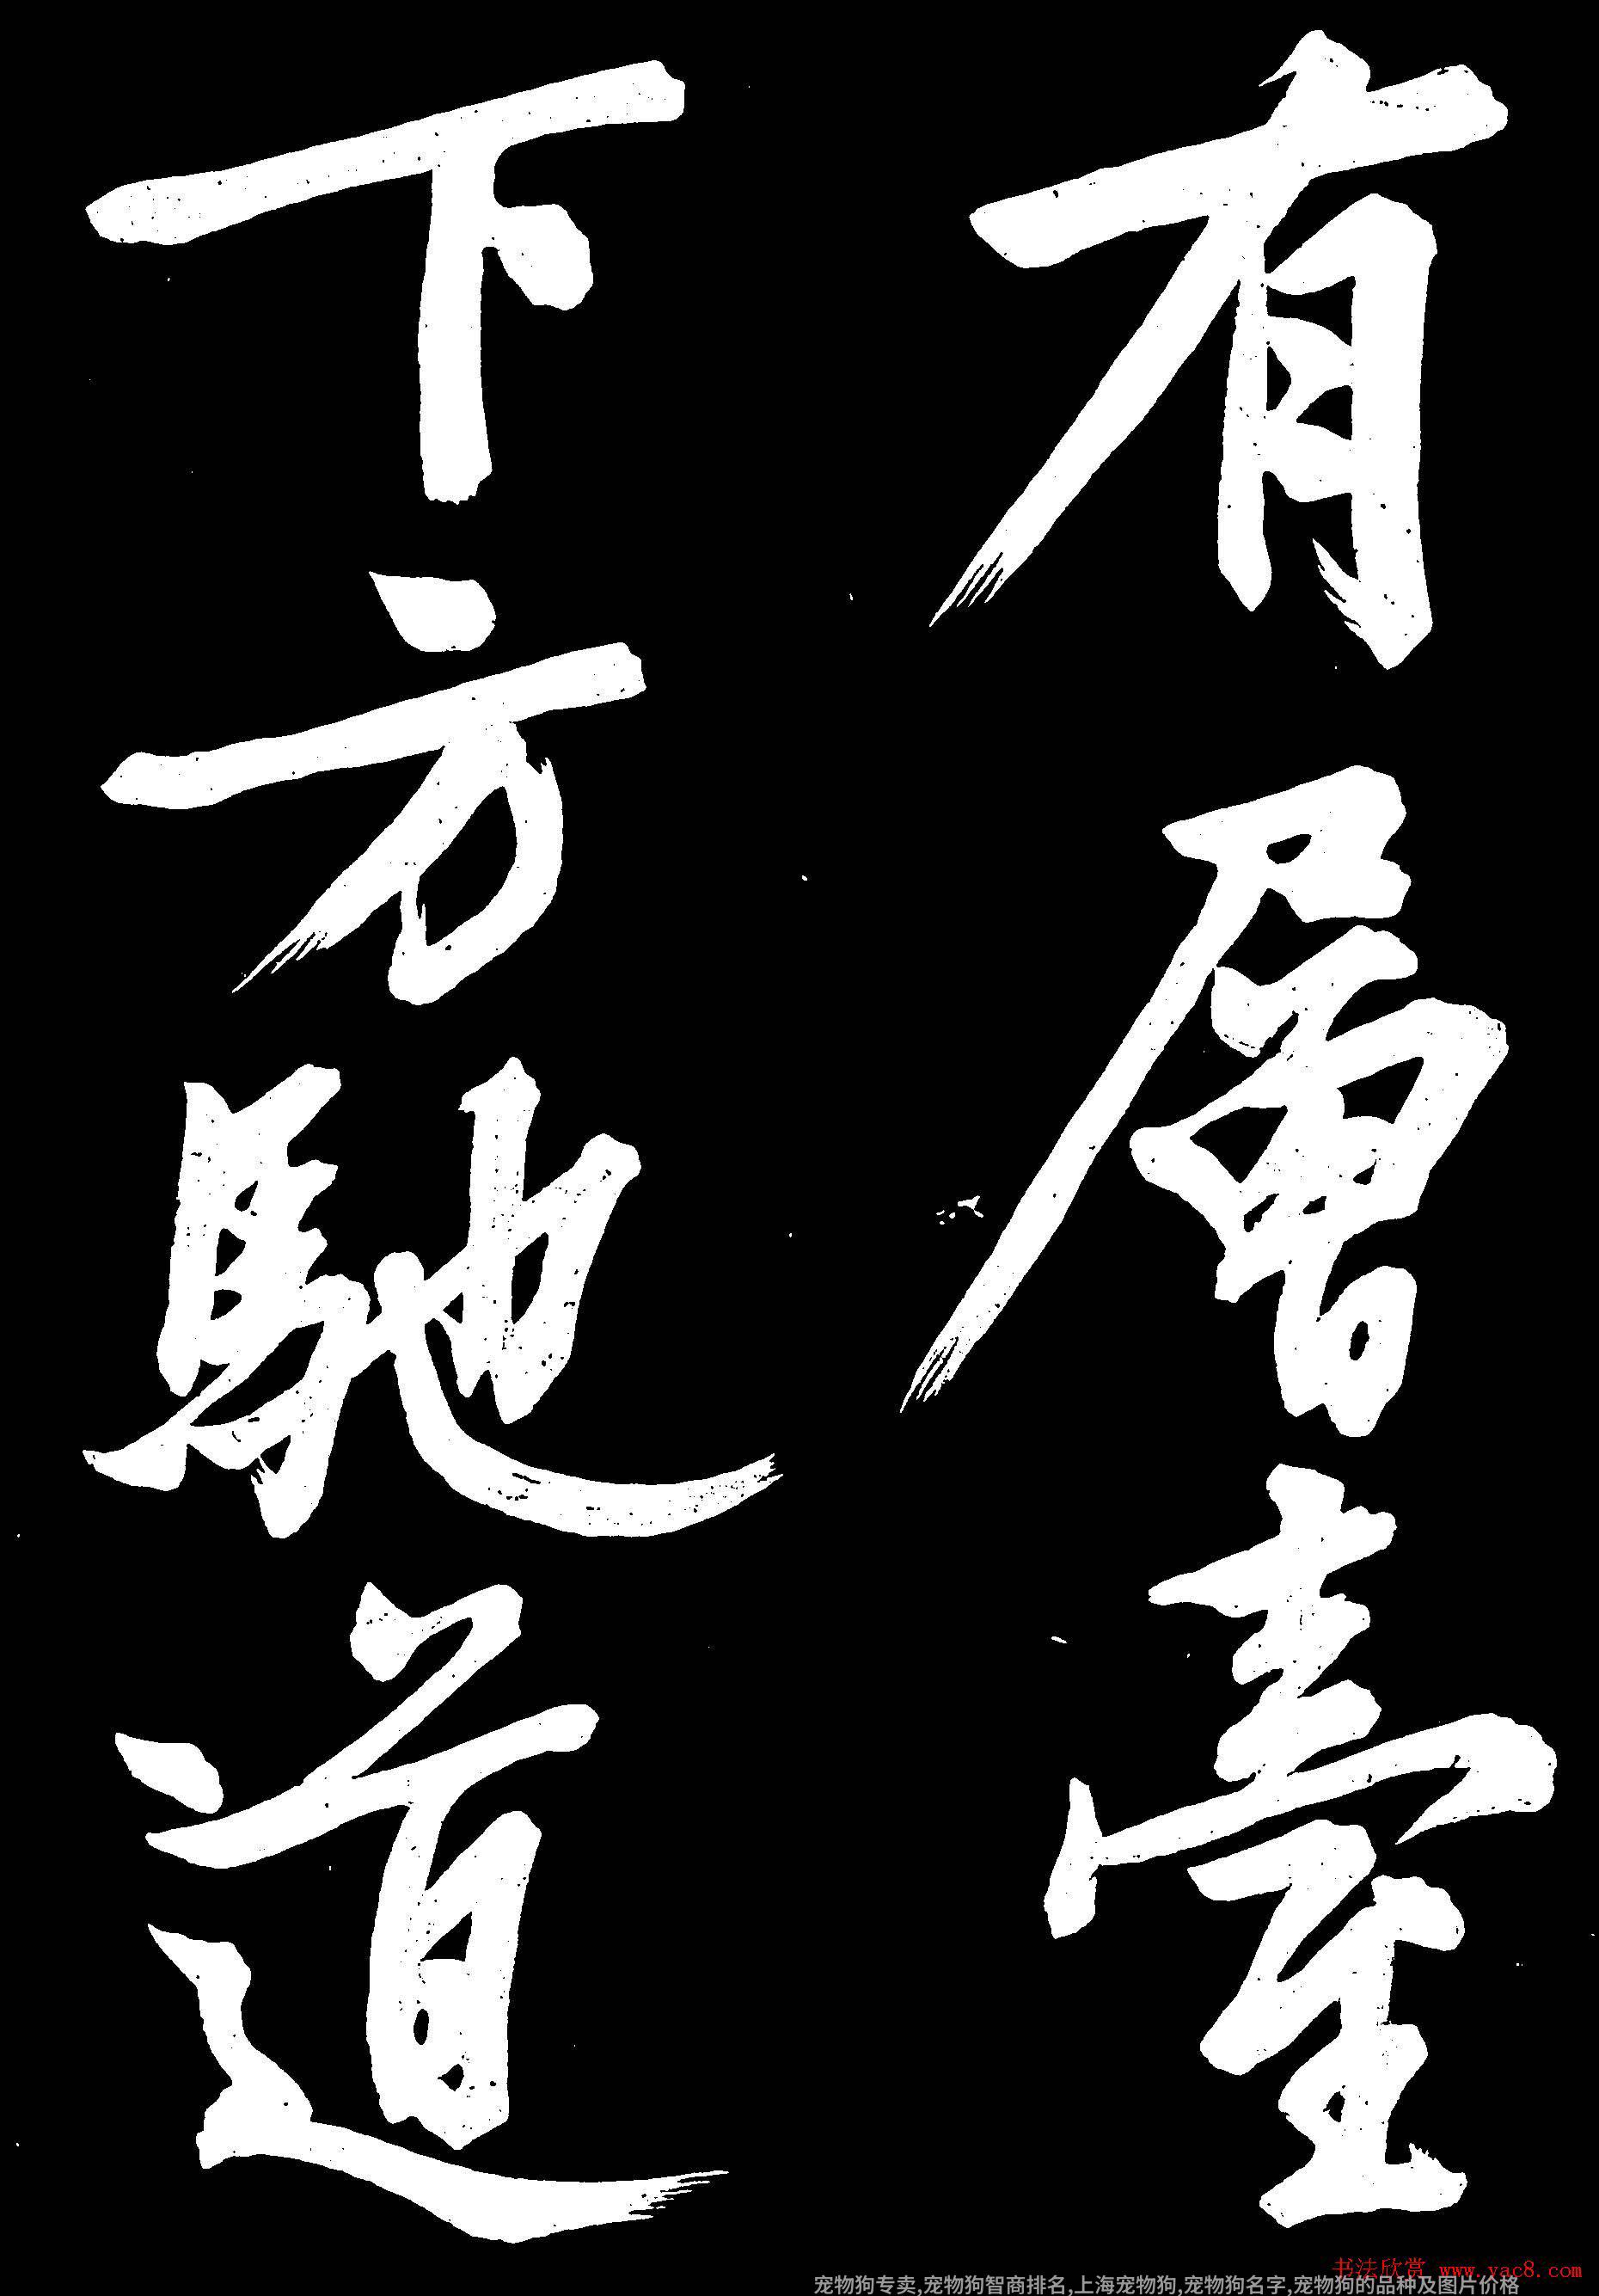 有層臺
下方馳道
书法欣赏 www.yac8.com
宠物狗专卖,宠物狗智商排名,上海宠物狗,宠物狗名字,宠物狗的品种及图片价格